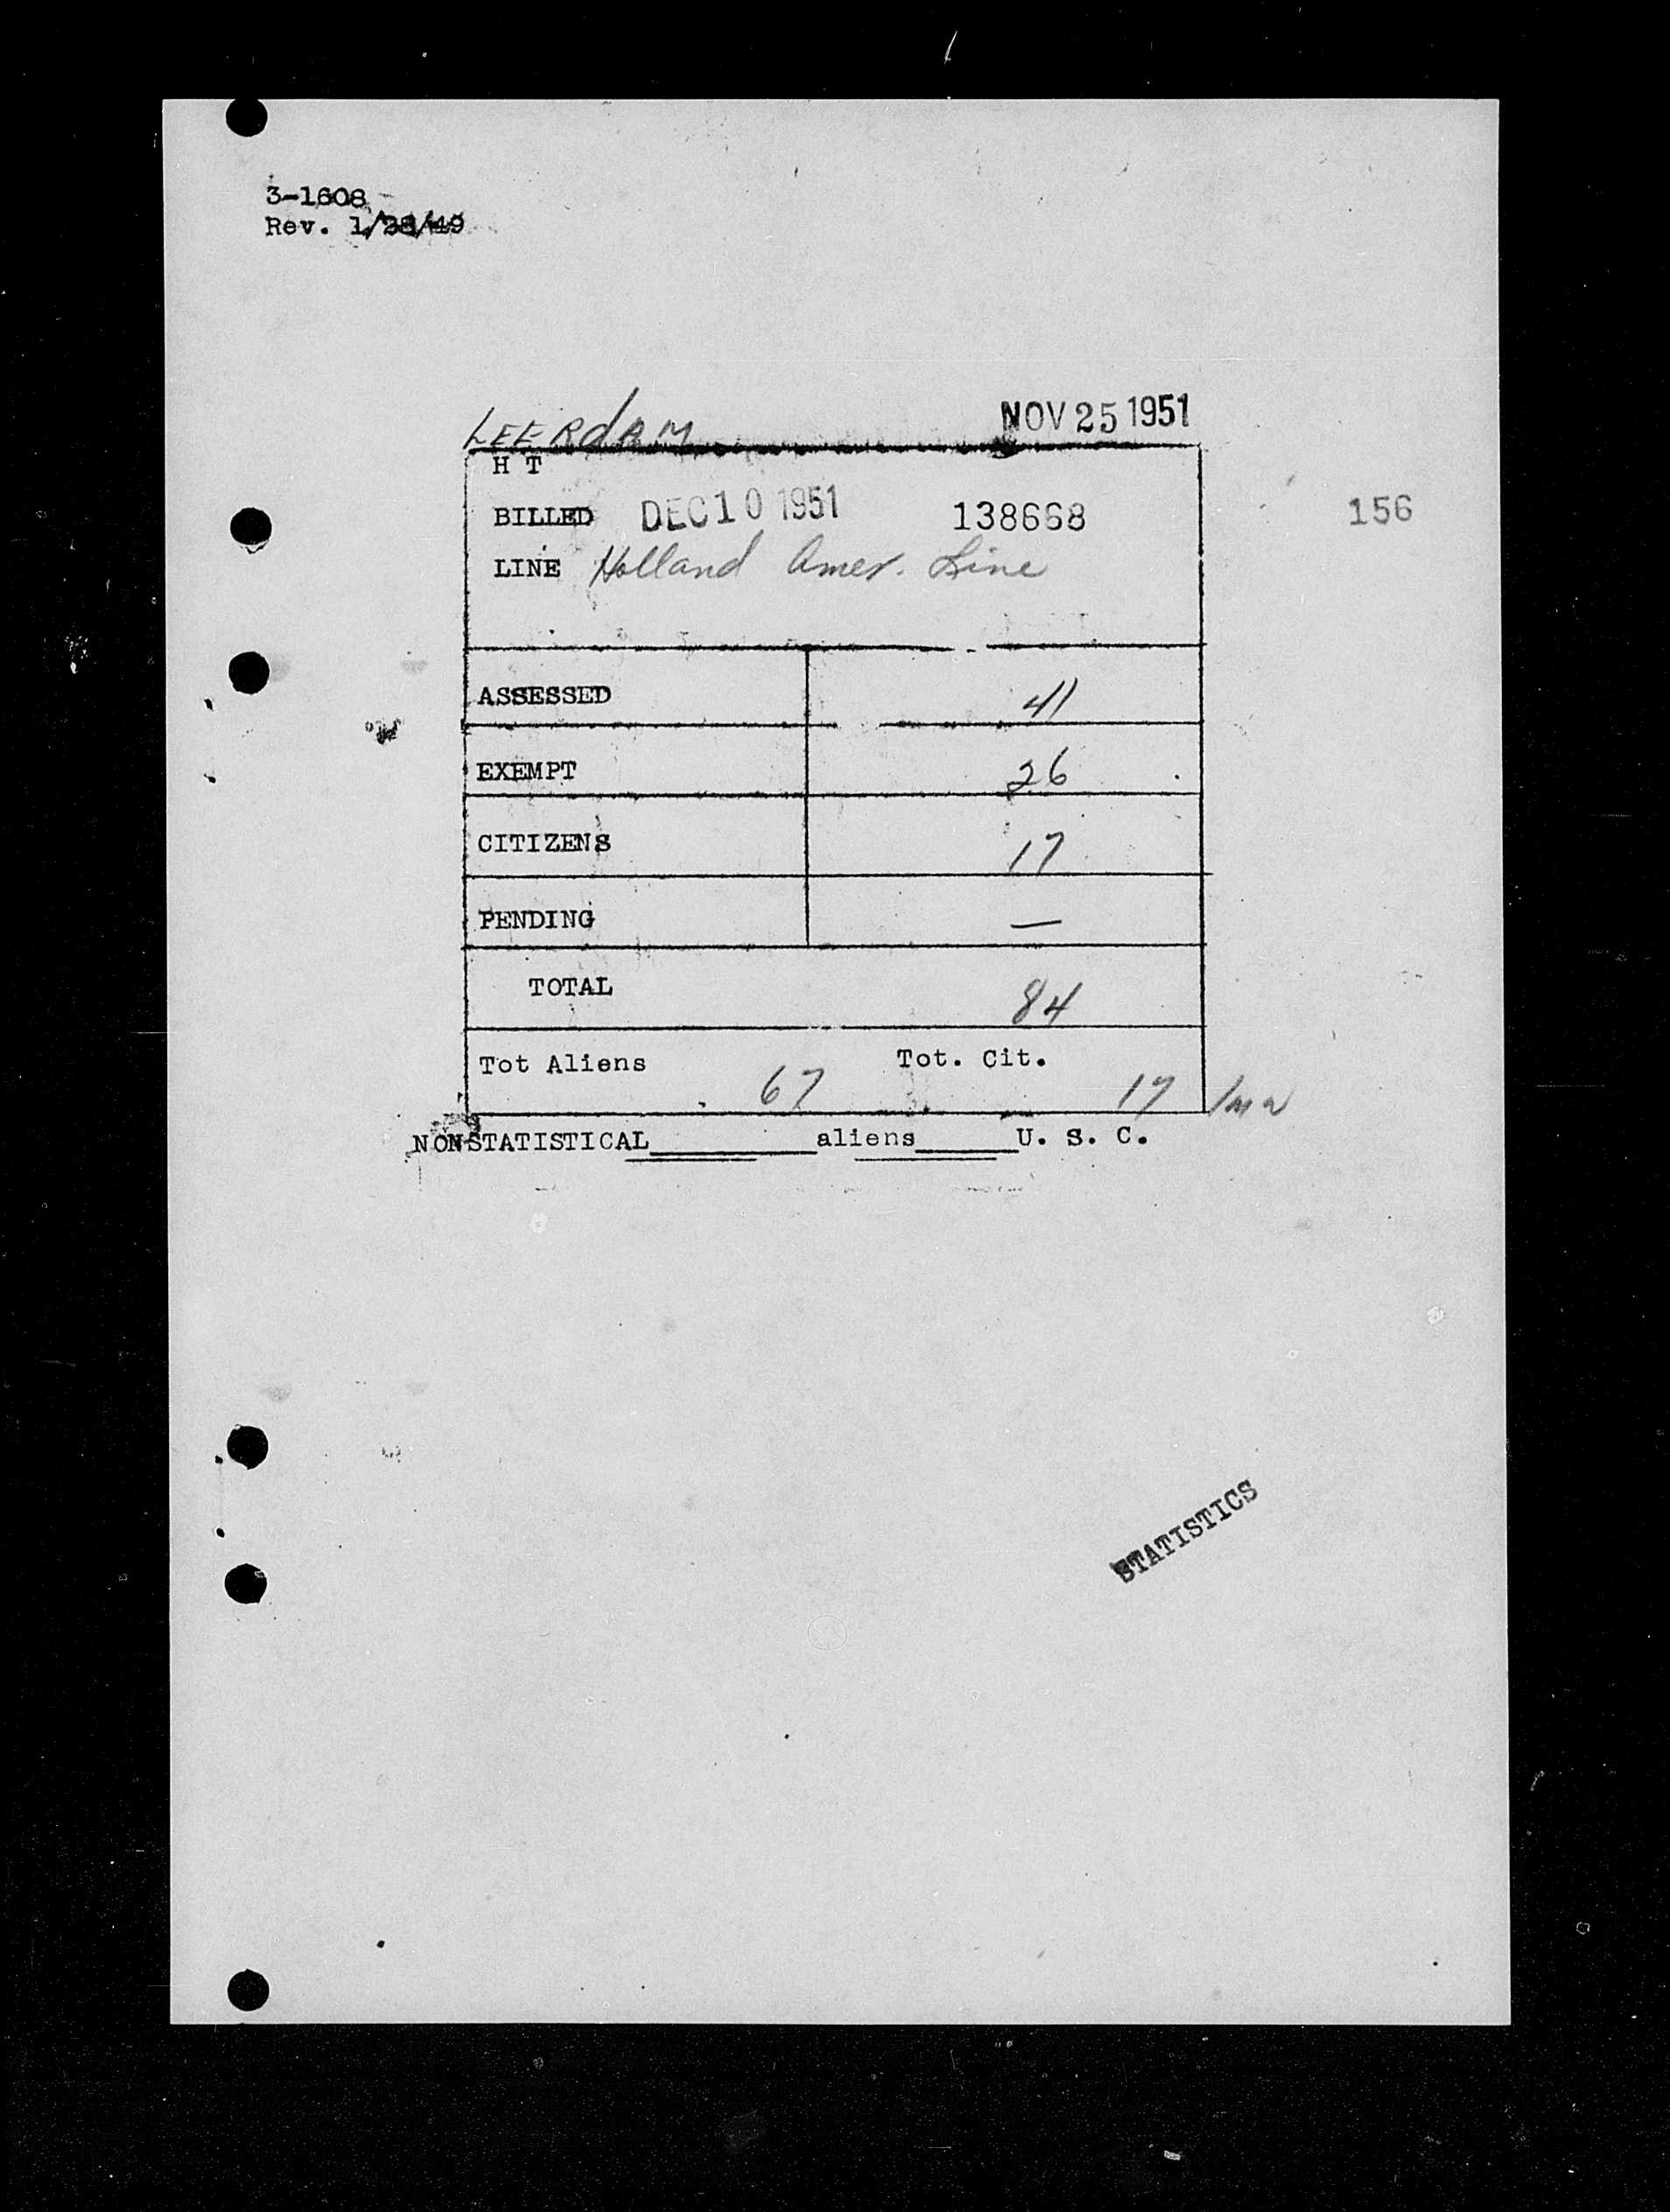 3-1608
Rev. 1/28/49
LEERdAM NOV 25 1951
H T
BILLED DEC 10 1951 138668 156
LINE Holland Amer. Line
ASSESSED 41
EXEMPT 26
CITIZENS 17
PENDING —
TOTAL 84
Tot Aliens 67 Tot. Cit. 17
NONSTATISTICAL aliens U. S. C.
STATISTICS